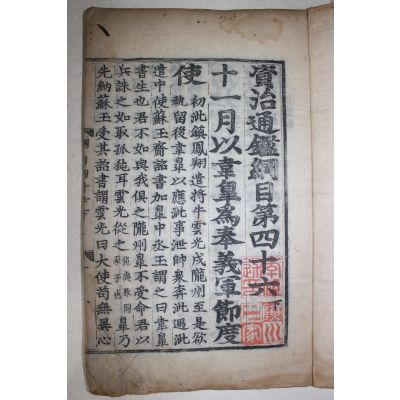 資治通鑑綱目第四十六下
十一月以韋皐爲奉義軍節度
使
初泚鎮鳳翔遣將牛雲光戍隴州至是欲
執留後韋皐以應泚事泄帥衆奔泚過泚
遣中使蘇玉齎詔書加皐中丞玉謂之曰韋皐
書生也君不如與我俱之隴州皐不受命君以
兵誅之如取孤㹠耳雲光從之皐乃
先納蘇玉受其詔書謂雲光曰大使苟無異心